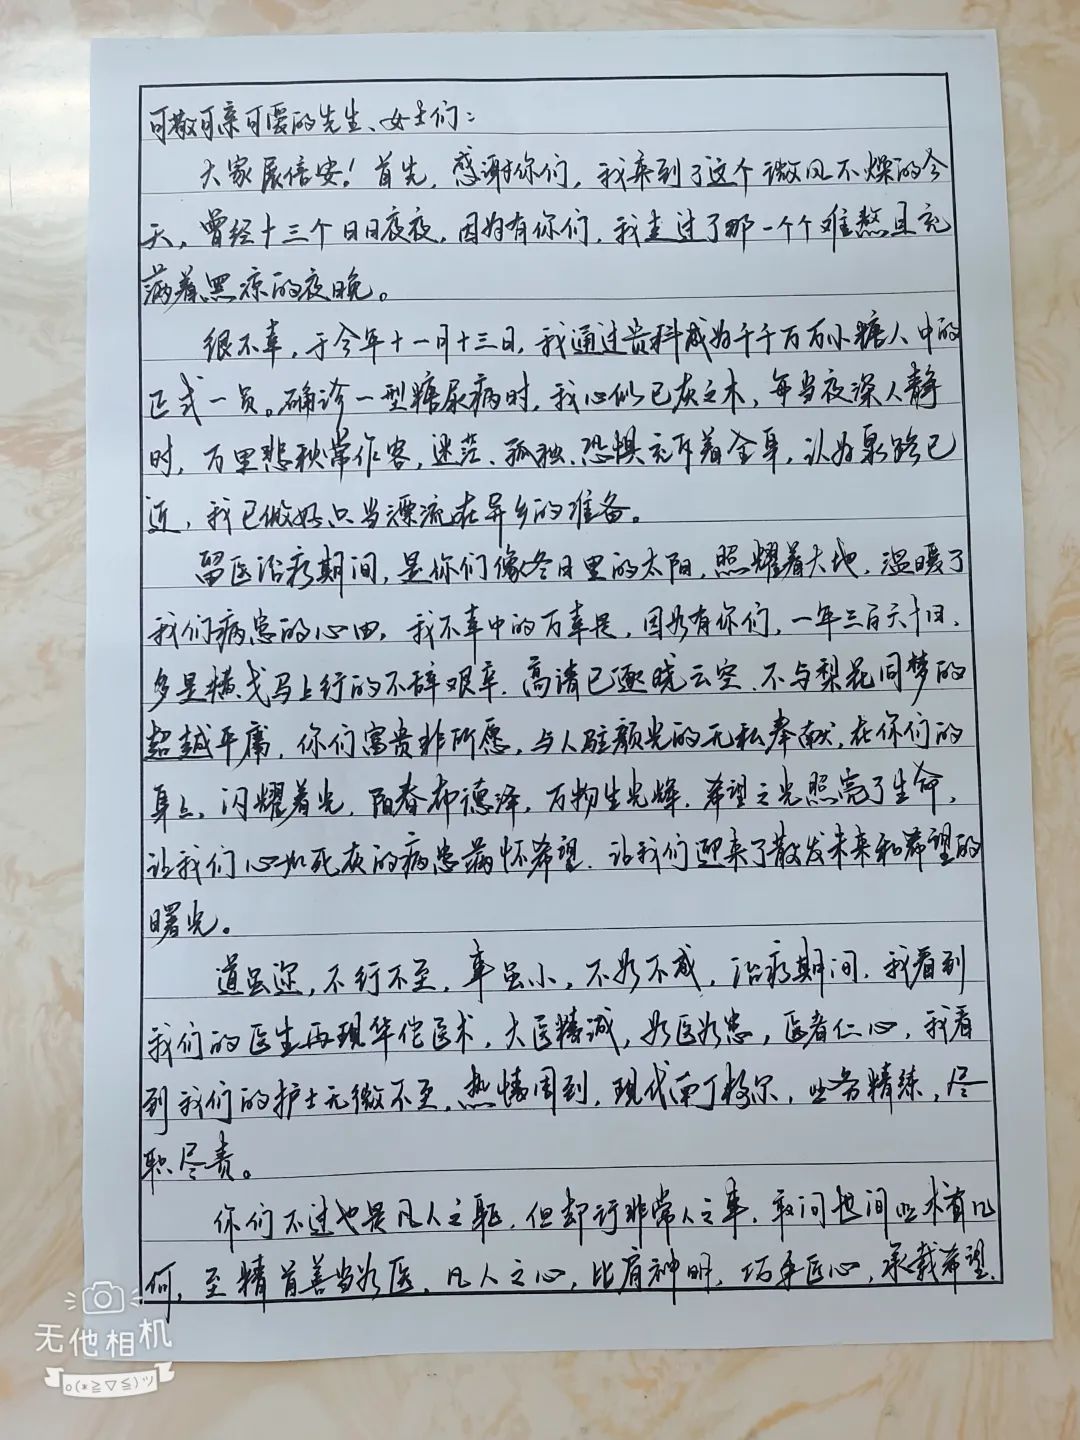 可敬可亲可爱的先生、女士们：
大家晨信安！首先，感谢你们，我来到了这个微风不燥的今
天，曾经十三个日日夜夜，因为有你们，我走过了那一个个难熬且充
满着黑凉的夜晚。
很不幸，于今年十一月十三日，我通过贵科成为千千万万小糖人中的
正式一员。确诊一型糖尿病时，我心似已灰之木，每当夜深人静
时，万里悲秋常作客，迷茫、孤独、恐惧充斥着全身，认为泉路已
近，我已做好只当漂流在异乡的准备。
留医治疗期间，是你们像冬日里的太阳，照耀着大地，温暖了
我们病患的心田，我不幸中的万幸是，因为有你们，一年三百六十日，
多是横戈马上行的不辞艰辛，高情已逐晓云空，不与梨花同梦的
超越平庸，你们富贵非所愿，与人驻颜光的无私奉献，在你们的
身上，闪耀着光，阳春布德泽，万物生光辉，希望之光照亮了生命，
让我们心如死灰的病患满怀希望，让我们迎来了散发未来和希望的
曙光。
道虽迩，不行不至，事虽小，不为不成，治疗期间，我看到
我们的医生再现华佗医术，大医精诚，为医为患，医者仁心，我看
到我们的护士无微不至，热情周到，现代南丁格尔，业务精练，尽
职尽责。
你们不过也是凡人之躯，但却行非常人之事，敢问世间业术有几
何，至精首善当为医，凡人之心，比肩神明，巧手匠心，承载希望，
无他相机
o(*≧▽≦)ツ